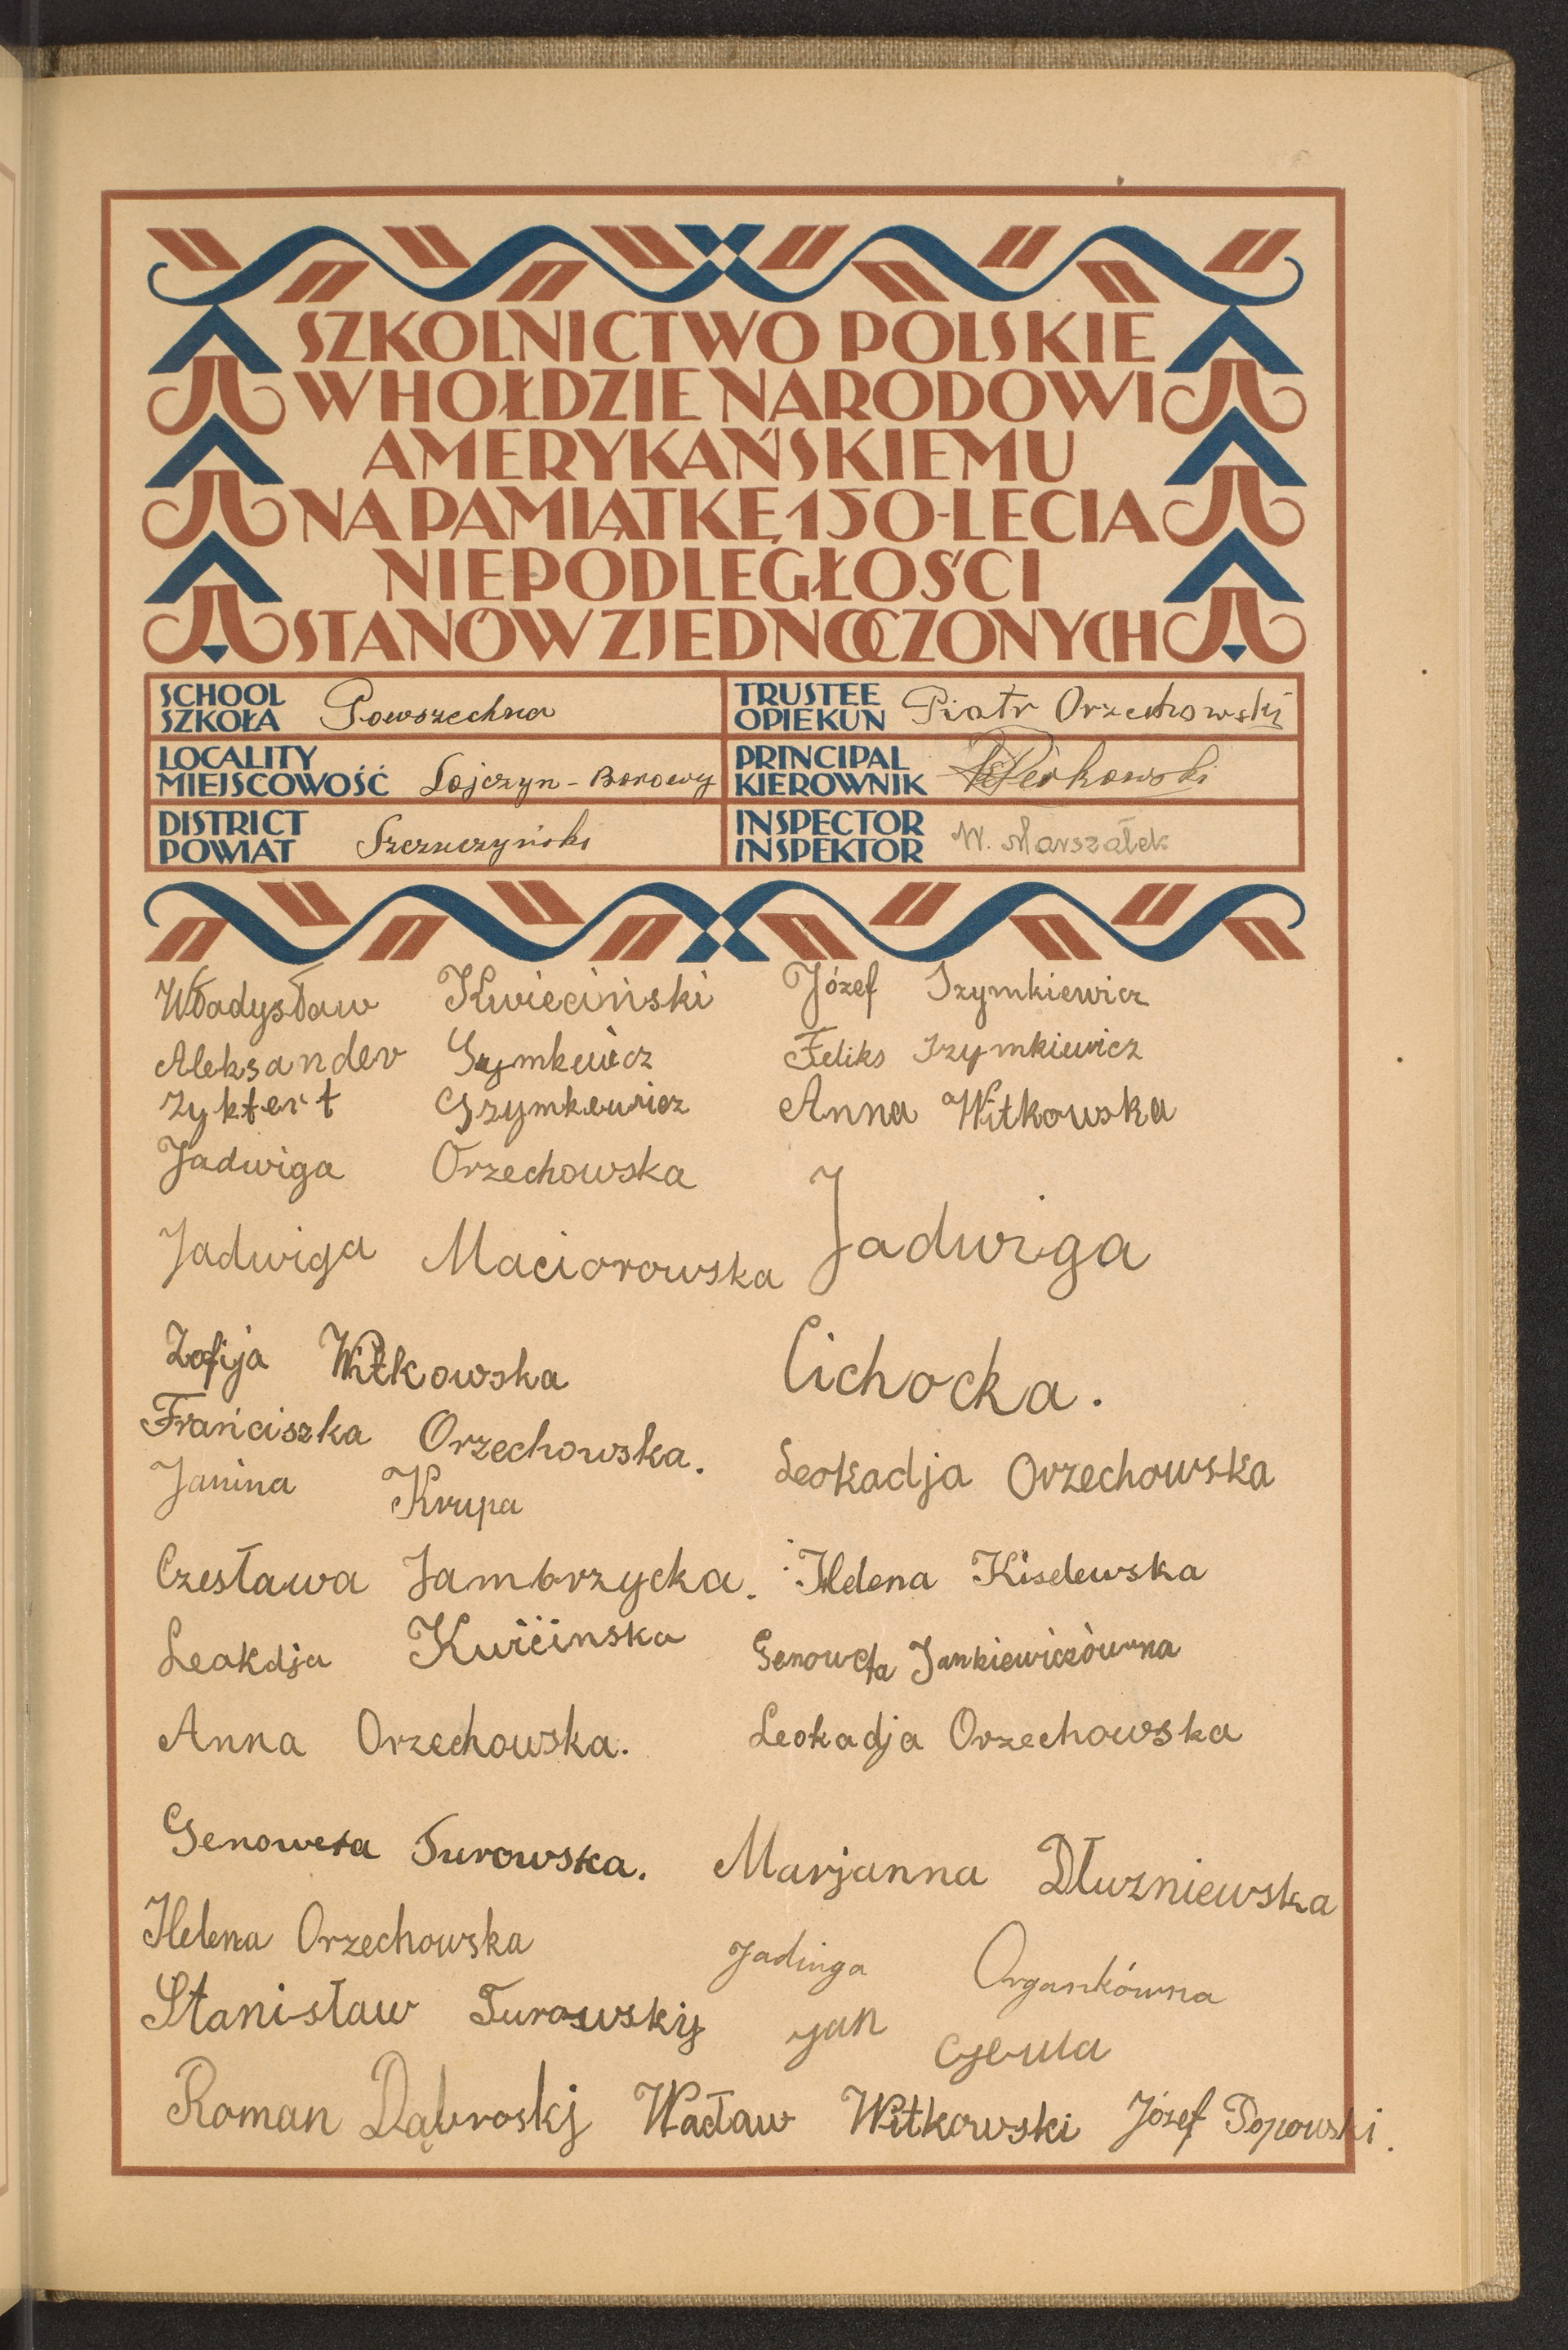 SZKOLNICTWO POLSKIE
W HOŁDZIE NARODOWI
AMERYKAŃSKIEMU
NA PAMIĄTKĘ 150-LECIA
NIEPODLEGŁOŚCI
STANÓW ZJEDNOCZONYCH
SCHOOL
SZKOŁA Powszechna
TRUSTEE
OPIEKUN Piotr Orzechowski
LOCALITY
MIEJSCOWOŚĆ Łojczyn-Borowy
PRINCIPAL
KIEROWNIK
DISTRICT
POWIAT Szczuczyński
INSPECTOR
INSPEKTOR W. Marszałek
Władysław Kwieciński
Aleksander Szymkewicz
Zykfert Szymkewicz
Jadwiga Orzechowska
Jadwiga Maciorowska
Zofija Witkowska
Franciszka Orzechowska.
Janina Krupa
Czesława Zambrzycka.
Leokdja Kwicinska
Anna Orzechowska.
Genowefa Turowska.
Helena Orzechowska
Stanisław Turowskij
Józef Szymkiewicz
Feliks Szymkiewicz
Anna Witkowska
Jadwiga
Cichocka.
Leokadja Orzechowska
Helena Kiselewska
Genowefa Jankiewiczówna
Leokadja Orzechowska
Marjanna Dłuzniewska
Jadwiga Organkówna
Jan
Roman Dąbroskj Wacław Witkowski Józef Popowski.